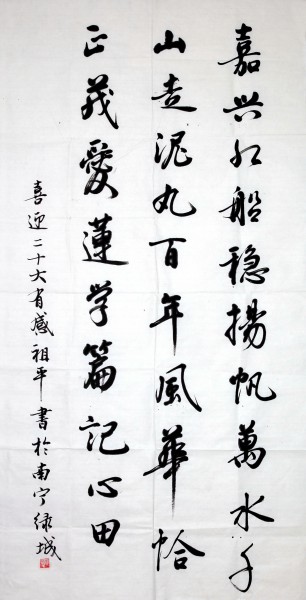 嘉兴红船稳揚帆萬水千
山走泥丸百年風華恰
正茂愛蓮学篇記心田
喜迎二十大有感祖平書於南宁绿城